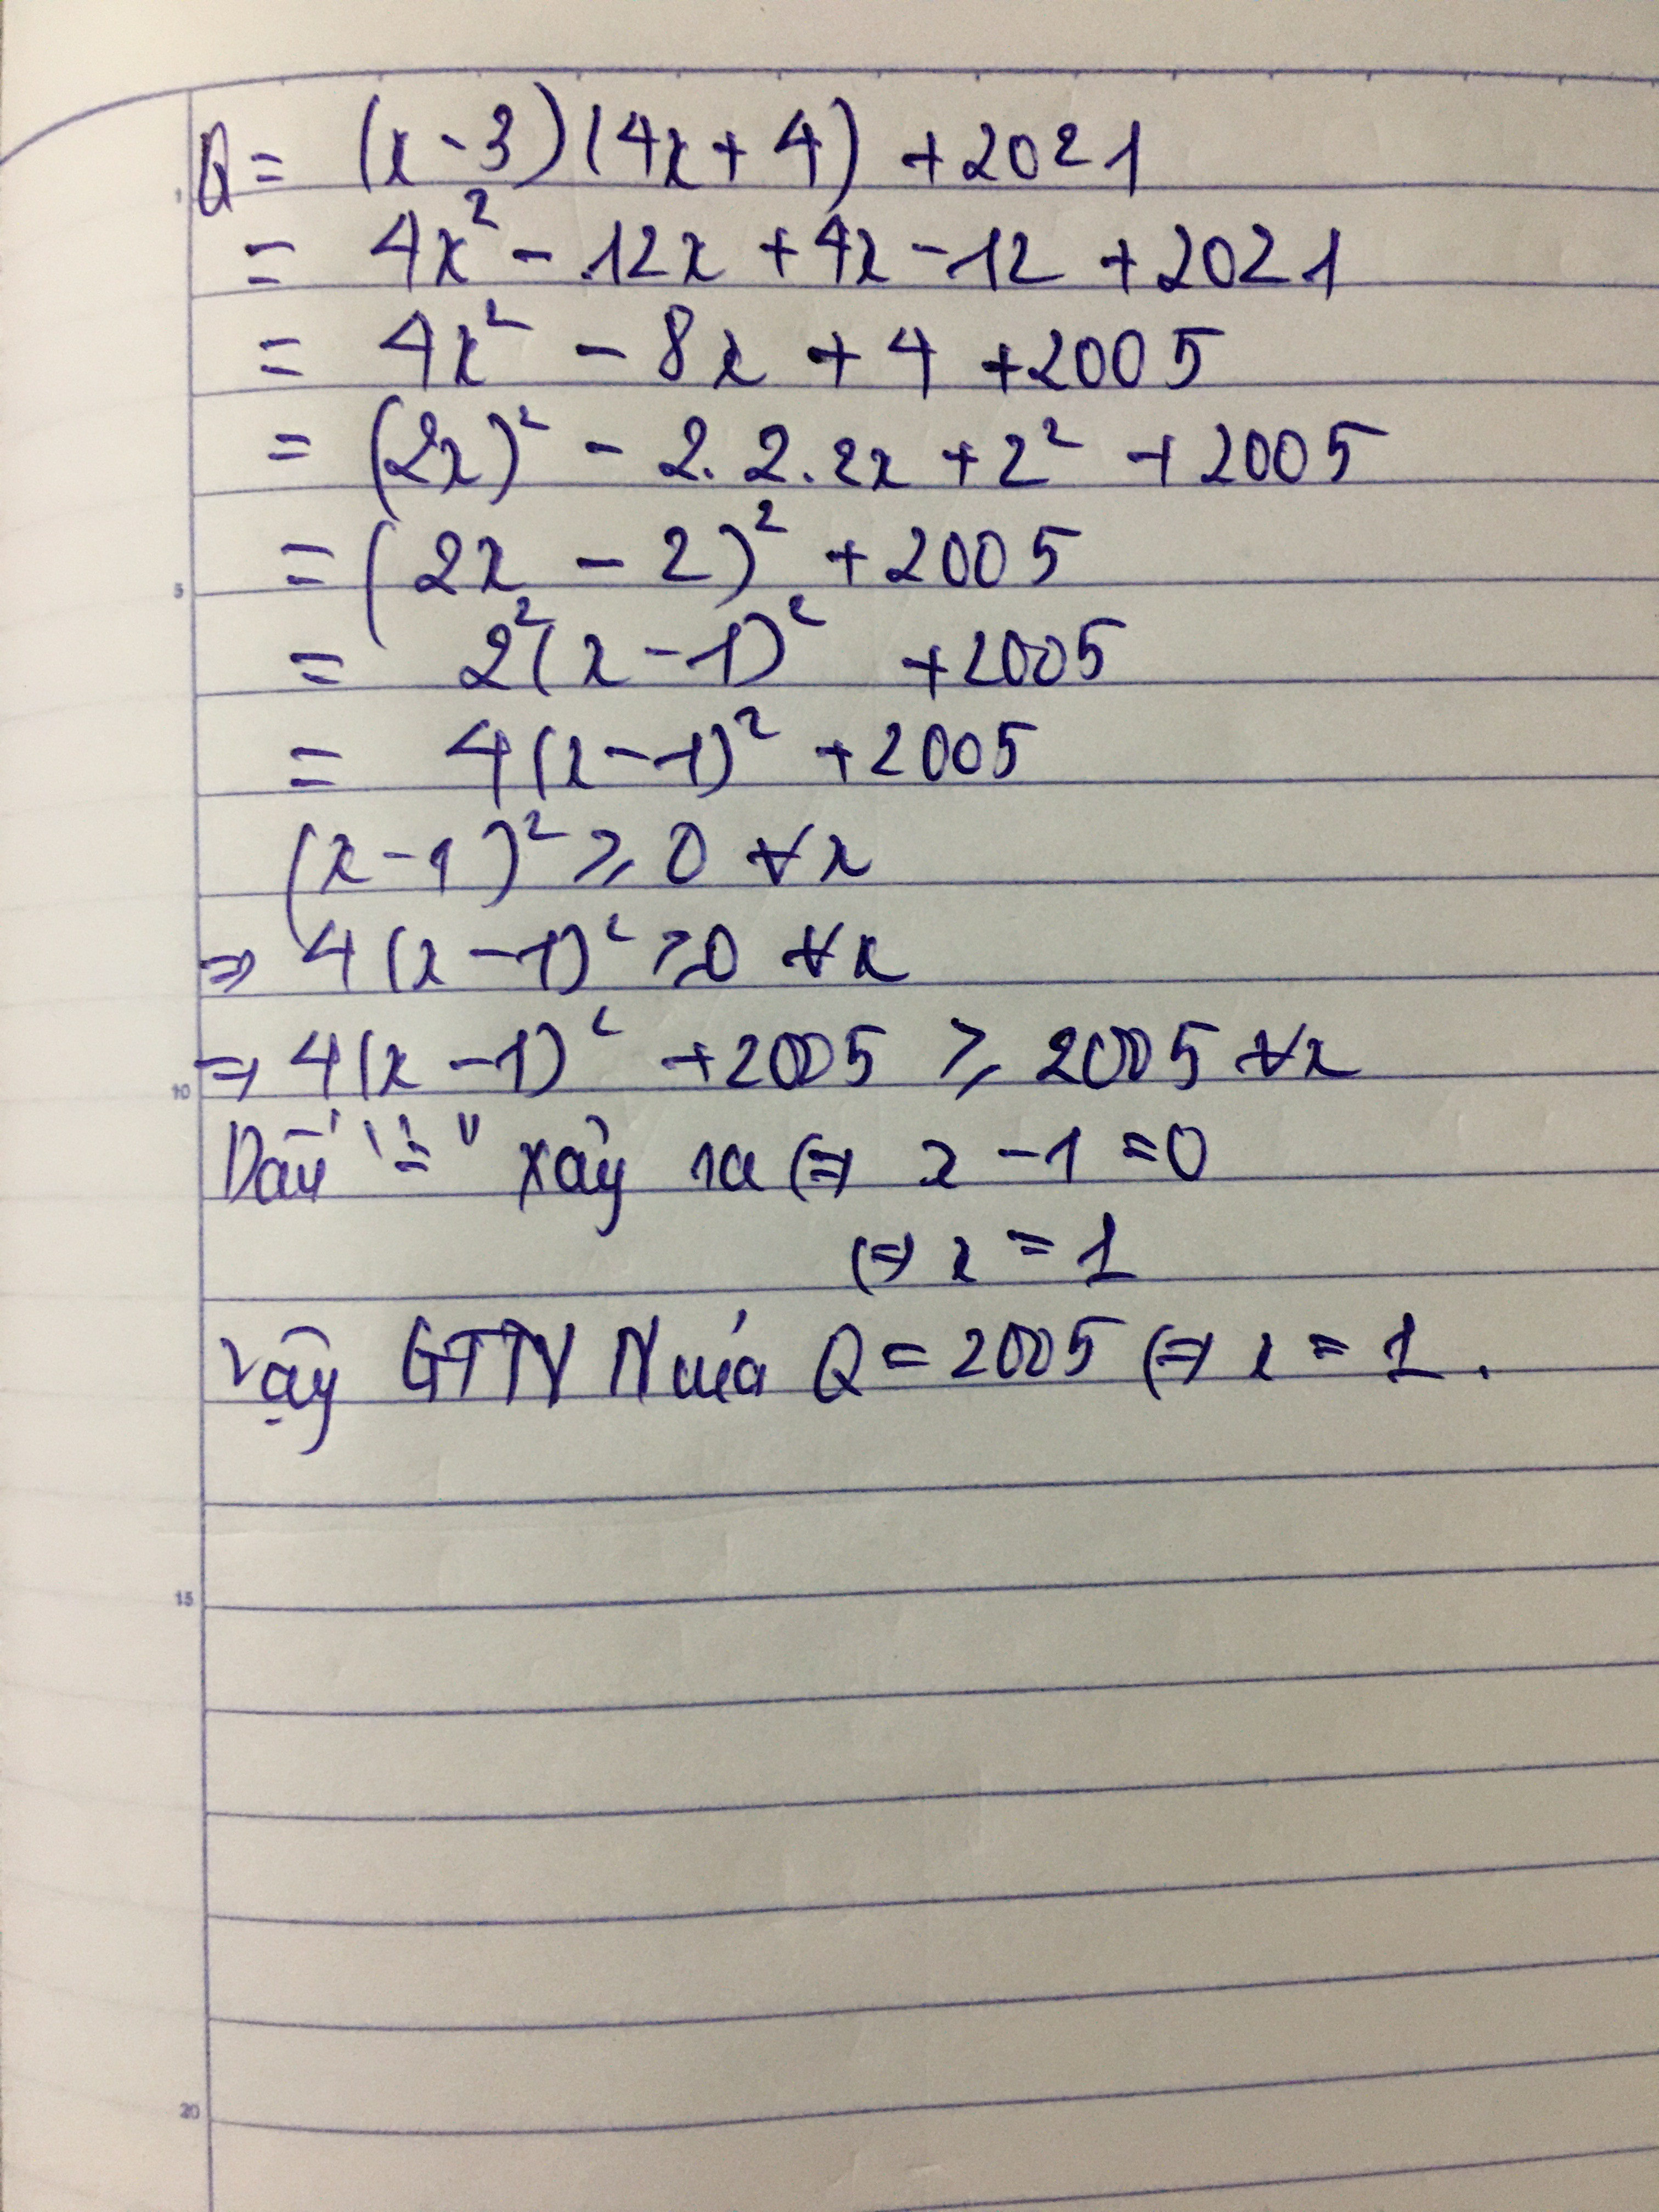 Q = (x - 3)(4x + 4) + 2021
1
= 4x² - 12x + 4x - 12 + 2021
= 4x² - 8x + 4 + 2005
= (2x)² - 2. 2. 2x + 2² + 2005
= (2x - 2)² + 2005
5
= 2²(x - 1)² + 2005
= 4(x - 1)² + 2005
(x - 1)² ≥ 0 ∀x
⇒ 4(x - 1)² ≥ 0 ∀x
⇒ 4(x - 1)² + 2005 ≥ 2005 ∀x
10
Dấu "=" xảy ra ⇔ x - 1 = 0
⇔ x = 1
Vậy GTNN của Q = 2005 ⇔ x = 1.
15
20